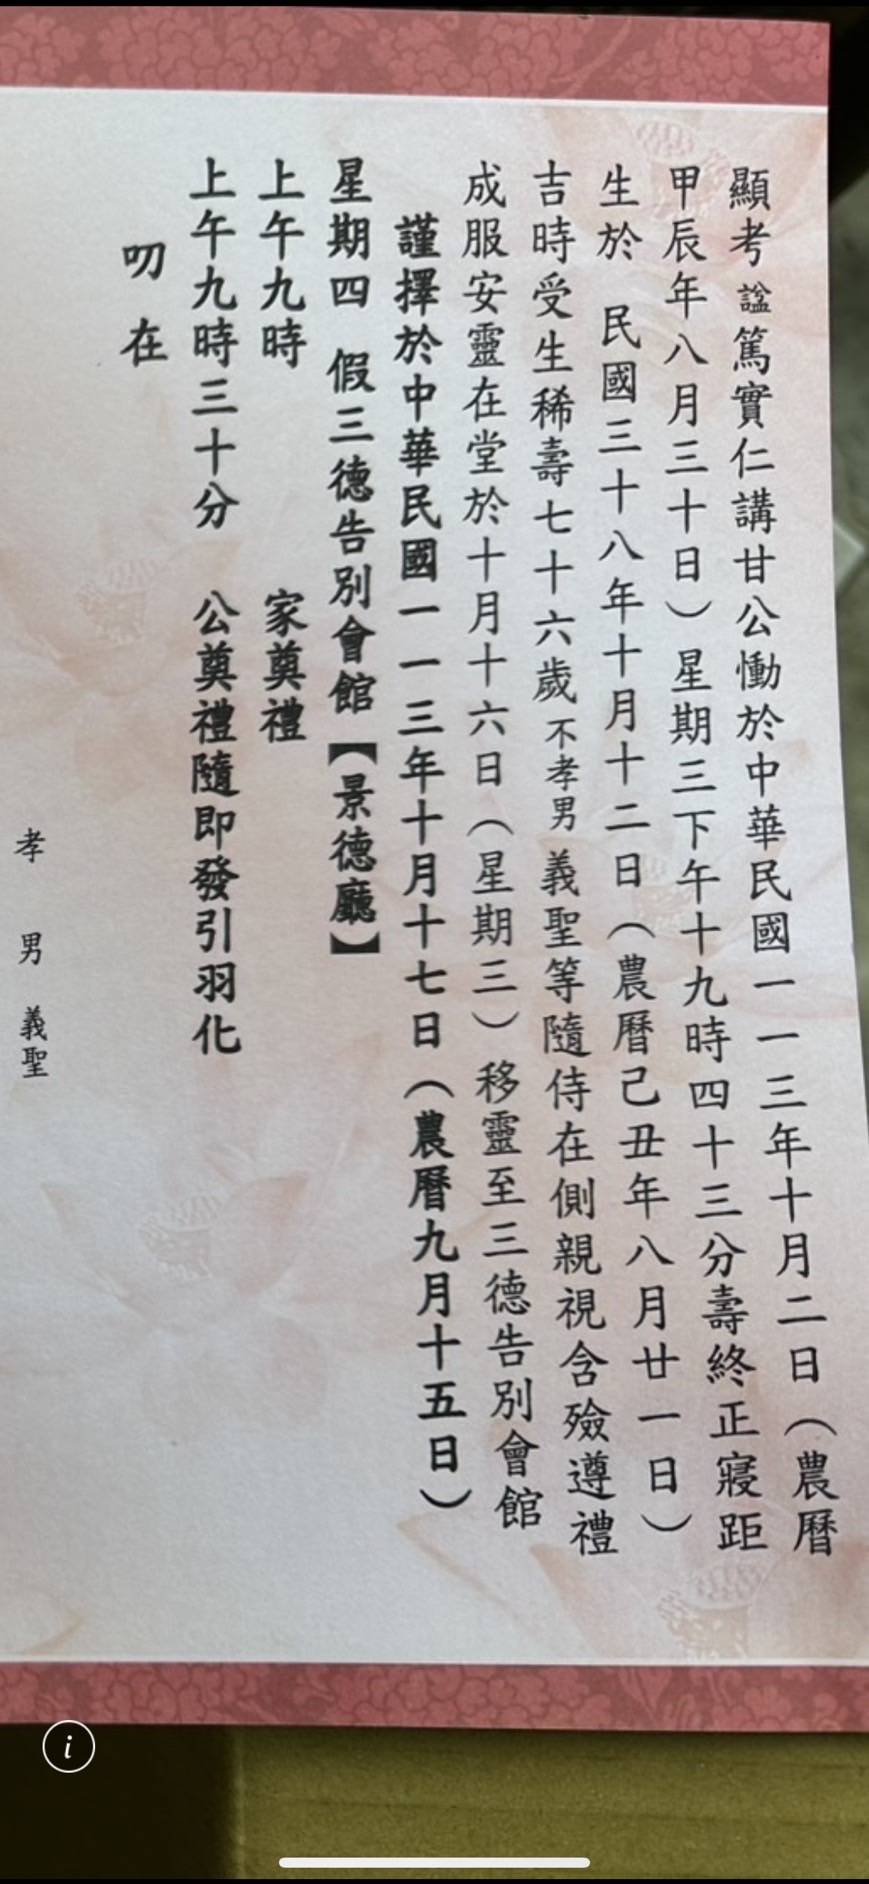 顯考 諡篤實仁講甘公慟於中華民國一一三年十月二日（農曆
甲辰年八月三十日）星期三下午十九時四十三分壽終正寢距
生於 民國三十八年十月十二日（農曆己丑年八月廿一日）
吉時受生稀壽七十六歲 不孝男 義聖等隨侍在側親視含殮遵禮
成服安靈在堂於十月十六日（星期三）移靈至三德告別會館
謹擇於中華民國一一三年十月十七日（農曆九月十五日）
星期四 假三德告別會館【景德廳】
上午九時 家奠禮
上午九時三十分 公奠禮隨即發引羽化
叨在
孝男 義聖